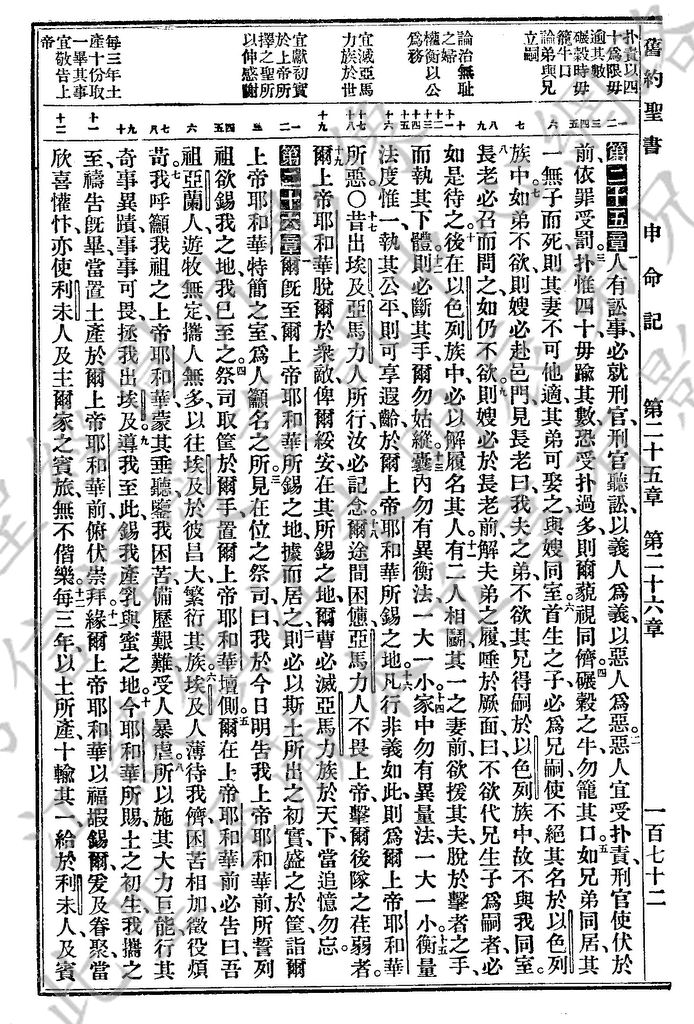 舊約聖書 申命記 第二十五章 第二十六章 一百七十二
扑責以四
十爲限毋
逾其數
碾穀時毋
籠牛口
論弟與兄
立嗣
論治無恥
之婦
權衡以公
爲務
宜滅亞馬
力族於世
宜獻初實
於上帝所
擇之聖所
以伸感謝
每三年土
產十份取
一畢其事
宜敬告上
帝
第二十五章一人有訟事、必就刑官、刑官聽訟、以義人爲義、以惡人爲惡。二惡人宜受扑責、刑官使伏於
前、依罪受罰、三扑惟四十、毋踰其數、恐受扑過多、則爾藐視同儕。四碾穀之牛、勿籠其口。五如兄弟同居、其
一無子而死、則其妻不可他適、其弟可娶之、與嫂同室。六首生之子、必爲兄嗣、使不絕其名於以色列
族中。七如弟不欲、則嫂必赴邑門、見長老曰、我夫之弟、不欲其兄得嗣於以色列族中、故不與我同室。
八長老必召而問之、如仍不欲、九則嫂必於長老前、解夫弟之履、唾於厥面、曰、不欲代兄生子爲嗣者、必
如是待之。十後在以色列族中、必以解履名其人。十一有二人相鬬、其一之妻前、欲援其夫、脫於擊者之手、
而執其下體、十二則必斷其手、爾勿姑縱。十三囊內勿有異衡法、一大一小。十四家中勿有異量法、一大一小。十五衡量
法度惟一、執其公平、則可享遐齡、於爾上帝耶和華所錫之地。十六凡行非義如此、則爲爾上帝耶和華
所惡。〇十七昔出埃及、亞馬力人所行、汝必記念、十八爾途間困憊、亞馬力人不畏上帝、擊爾後隊之荏弱者。
十九爾上帝耶和華、脫爾於衆敵、俾爾綏安、在其所錫之地、爾曹必滅亞馬力族於天下、當追憶勿忘。
第二十六章一爾既至爾上帝耶和華所錫之地、據而居之、二則必以斯土所出之初實、盛之於筐、詣爾
上帝耶和華特簡之室、爲人籲名之所、三見在位之祭司曰、我於今日、明告我上帝耶和華前、所誓列
祖欲錫我之地、我已至之。四祭司取筐於爾手、置爾上帝耶和華壇側。五爾在上帝耶和華前必告曰、吾
祖亞蘭人、遊牧無定、攜人無多、以往埃及、於彼昌大、繁衍其族。六埃及人薄待我儕、困苦相加、徵役煩
苛、七我呼籲我祖之上帝耶和華、蒙其垂聽、鑒我困苦、備歷艱難、受人暴虐。八所以施其大力巨能、行其
奇事異蹟、事事可畏、拯我出埃及、九導我至此、錫我產乳與蜜之地。十今耶和華所賜土之初生、我攜之
至、禱告既畢、當置土產於爾上帝耶和華前、俯伏崇拜、十一緣爾上帝耶和華以福嘏錫爾、爰及眷聚、當
欣喜懽忭、亦使利未人、及主爾家之賓旅、無不偕樂。十二每三年、以土所產、十輸其一、給於利未人、及賓